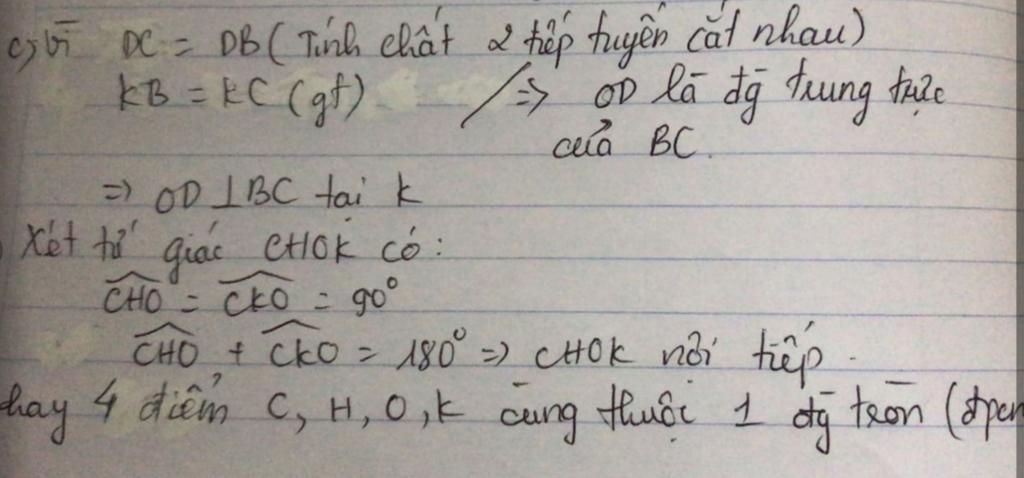 c, Vì DC = DB (Tính chất 2 tiếp tuyến cắt nhau)
KB = KC (gt) / => OD là đg trung trực
của BC.
=> OD ⊥ BC tại K
Xét tứ giác CHOK có:
CHO = CKO = 90°
CHO + CKO = 180° => CHOK nội tiếp.
hay 4 điểm C, H, O, K cùng thuộc 1 đg tròn (đpcm